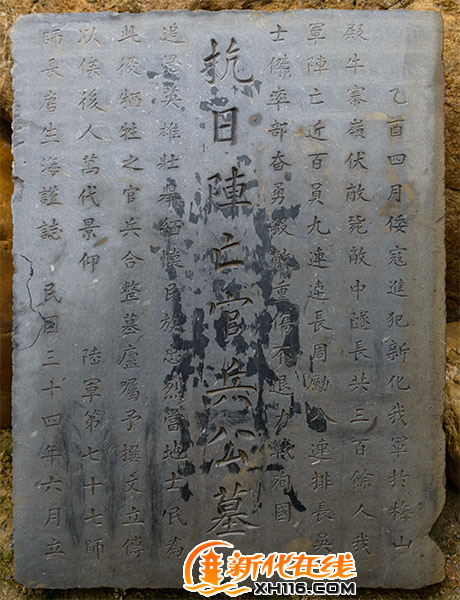 乙酉四月倭寇進犯新化我軍於梅山
殿牛寨嶺伏敵斃敵中隊長共三百餘人我
軍陣亡近百員九連連長周勵 連排長吳
士傑率部奮勇殺敵重傷不退力戰殉國
抗日陣亡官兵公墓
追思英雄壯舉緬懷民族忠烈當地士民為
此役犧牲之官兵合整墓廬囑予撰文立傳
以俟後人萬代景仰 陸軍第七十七師
師長唐生海謹誌 民國三十四年六月立
新化在线
XH118.COM